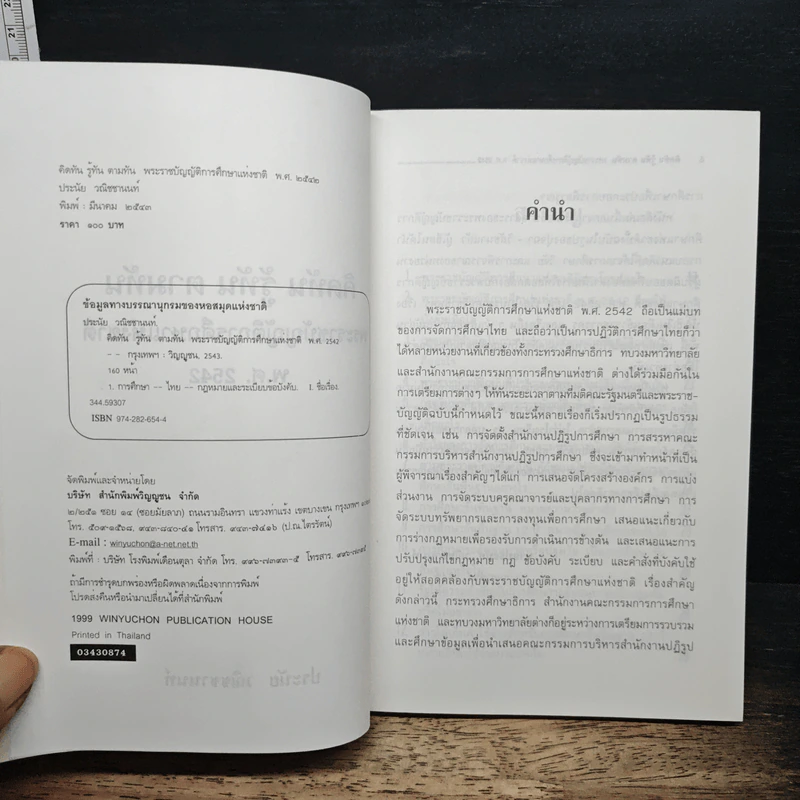 คิดทัน รู้ทัน ตามทัน พระราชบัญญัติการศึกษาแห่งชาติ พ.ศ. ๒๕๔๒
ประนัย วณิชชานนท์
พิมพ์ : มีนาคม ๒๕๔๓
ราคา ๑๐๐ บาท
ข้อมูลทางบรรณานุกรมของหอสมุดแห่งชาติ
ประนัย วณิชชานนท์.
คิดทัน รู้ทัน ตามทัน พระราชบัญญัติการศึกษาแห่งชาติ พ.ศ 2542
-- กรุงเทพฯ : วิญญูชน, 2543.
160 หน้า
1. การศึกษา -- ไทย -- กฎหมายและระเบียบข้อบังคับ. I. ชื่อเรื่อง.
344.59307
ISBN 974-282-654-4
จัดพิมพ์และจำหน่ายโดย
บริษัท สำนักพิมพ์วิญญูชน จำกัด
๒/๒๕๑ ซอย ๑๔ (ซอยมัยลาภ) ถนนรามอินทรา แขวงท่าแร้ง เขตบางเขน กรุงเทพฯ
โทร. ๕๐๙-๑๕๖๘, ๙๔๓-๘๔๐-๔๑ โทรสาร. ๙๔๓-๗๔๑๖ (ป.ณ.ไตรรัตน์)
E-mail : winyuchon@a-net.net.th
พิมพ์ที่ : บริษัท โรงพิมพ์เดือนตุลา จำกัด โทร. ๙๙๖-๗๓๙๓-๕ โทรสาร.
ถ้ามีการชำรุดบกพร่องหรือผิดพลาดเนื่องจากการพิมพ์
โปรดส่งคืนหรือนำมาเปลี่ยนได้ที่สำนักพิมพ์
1999 WINYUCHON PUBLICATION HOUSE
Printed in Thailand
03430874
คำนำ
พระราชบัญญัติการศึกษาแห่งชาติ พ.ศ. 2542 ถือเป็นแม่บท
ของการจัดการศึกษาไทย และถือว่าเป็นการปฏิวัติการศึกษาไทยก็ว่า
ได้หลายหน่วยงานที่เกี่ยวข้องทั้งกระทรวงศึกษาธิการ ทบวงมหาวิทยาลัย
และสำนักงานคณะกรรมการการศึกษาแห่งชาติ ต่างได้ร่วมมือกันใน
การเตรียมการต่างๆ ให้ทันระยะเวลาตามที่มติคณะรัฐมนตรีและพระราช-
บัญญัติฉบับนี้กำหนดไว้ ขณะนี้หลายเรื่องก็เริ่มปรากฏเป็นรูปธรรม
ที่ชัดเจน เช่น การจัดตั้งสำนักงานปฏิรูปการศึกษา การสรรหาคณะ
กรรมการบริหารสำนักงานปฏิรูปการศึกษา ซึ่งจะเข้ามาทำหน้าที่เป็น
ผู้พิจารณาเรื่องสำคัญๆได้แก่ การเสนอจัดโครงสร้างองค์กร การแบ่ง
ส่วนงาน การจัดระบบครูคณาจารย์และบุคลากรทางการศึกษา การ
จัดระบบทรัพยากรและการลงทุนเพื่อการศึกษา เสนอแนะเกี่ยวกับ
การร่างกฎหมายเพื่อรองรับการดำเนินการข้างต้น และเสนอแนะการ
ปรับปรุงแก้ไขกฎหมาย กฎ ข้อบังคับ ระเบียบ และคำสั่งที่บังคับใช้
อยู่ให้สอดคล้องกับพระราชบัญญัติการศึกษาแห่งชาติ เรื่องสำคัญ
ดังกล่าวนี้ กระทรวงศึกษาธิการ สำนักงานคณะกรรมการการศึกษา
แห่งชาติ และทบวงมหาวิทยาลัยต่างก็อยู่ระหว่างการเตรียมการรวบรวม
และศึกษาข้อมูลเพื่อนำเสนอคณะกรรมการบริหารสำนักงานปฏิรูป